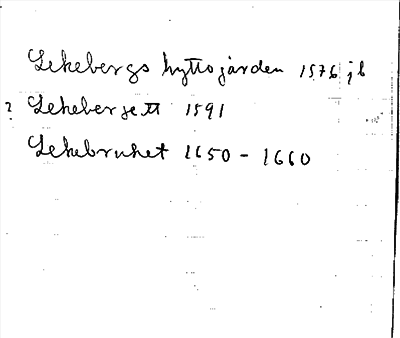 Lekebergs hyttogården 1576 jb
? Lekebergett 1591
Lekebruket 1650 - 1660